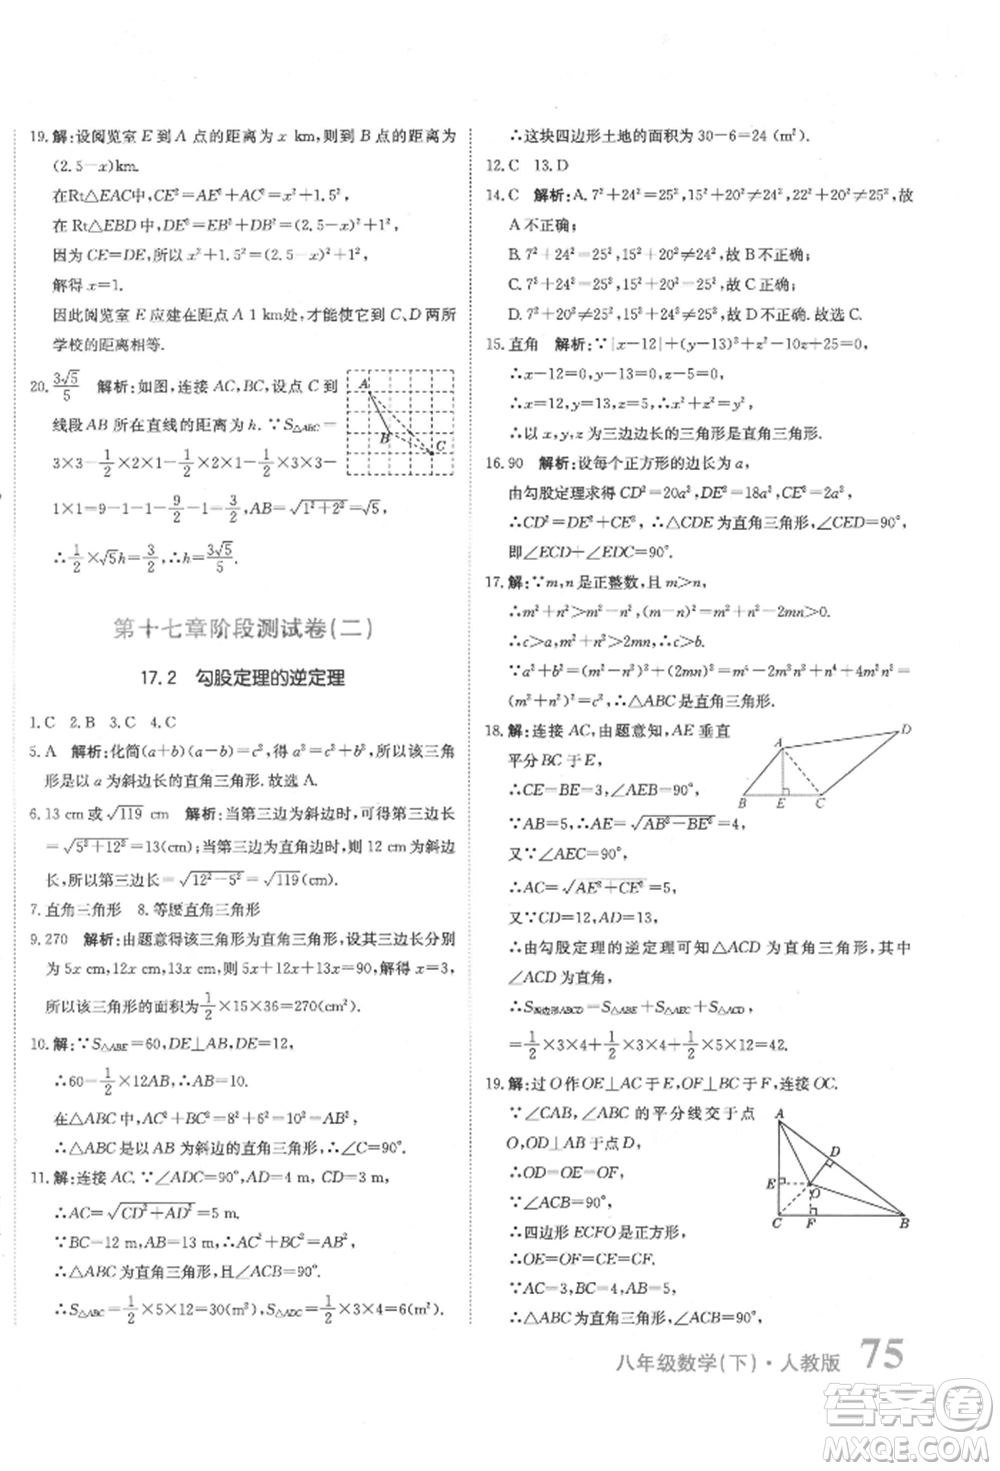 19. 解:设阅览室 E 到 A 点的距离为 x km,则到 B 点的距离为
(2.5-x)km.
在Rt△EAC中,CE²=AE²+AC²=x²+1.5²,
在 Rt△EBD 中,DE²=EB²+DB²=(2.5-x)²+1²,
因为 CE=DE,所以 x²+1.5²=(2.5-x)²+1²,
解得 x=1.
因此阅览室 E 应建在距点 A 1 km处,才能使它到 C、D 两所
学校的距离相等.
20. 3√5/5 解析:如图,连接 AC,BC,设点 C 到
线段 AB 所在直线的距离为 h. ∵S△ABC=
3×3-1/2×2×1-1/2×2×1-1/2×3×3-
1×1=9-1-1-9/2-1=3/2,AB=√(1²+2²)=√5,
∴1/2×√5h=3/2,∴h=3√5/5.
A
B
C
第十七章阶段测试卷(二)
17.2 勾股定理的逆定理
1. C 2. B 3. C 4. C
5. A 解析:化简(a+b)(a-b)=c²,得 a²=c²+b²,所以该三角
形是以 a 为斜边长的直角三角形.故选 A.
6. 13 cm 或√119 cm 解析:当第三边为斜边时,第三边长
=√(5²+12²)=13(cm);当第三边为直角边时,则 12 cm 为斜边
长,所以第三边长=√(12²-5²)=√119(cm).
7. 直角三角形 8. 等腰直角三角形
9. 270 解析:由题意得该三角形为直角三角形,设其三边长分别
为 5x cm,12x cm,13x cm,则 5x+12x+13x=90,解得 x=3,
所以该三角形的面积为1/2×15×36=270(cm²).
10. 解:∵S△ABE=60,DE⊥AB,DE=12,
∴60=1/2×12AB,∴AB=10.
在△ABC中,AC²+BC²=8²+6²=100=AB²,
∴△ABC 是以 AB 为斜边的直角三角形.
11. 解:连接 AC. ∵∠ADC=90°,AD=4 m,CD=3 m,
∴AC=√(CD²+AD²)=5 m.
∵BC=12 m,AB=13 m,∴AC²+BC²=AB²,
∴△ABC为直角三角形,且∠ACB=90°,
∴S△ABC=1/2×5×12=30(m²),S△ADC=1/2×3×4=6(m²),
∴这块四边形土地的面积为 30-6=24 (m²).
12. C 13. D
14. C 解析:A. 7²+24²=25²,15²+20²≠24²,22²+20²≠25²,故
A 不正确;
B. 7²+24²=25²,15²+20²≠24²,故 B 不正确;
C. 7²+24²=25²,15²+20²=25²,故 C 正确;
D. 7²+20²≠25²,24²+15²≠25²,故 D 不正确.故选C.
15. 直角 解析:∵|x-12|+(y-13)²+z²-10z+25=0,
∴x-12=0,y-13=0,z-5=0,
∴x=12,y=13,z=5,
∴以 x,y,z 为三边边长的三角形是直角三角形.
16. 90 解析:设每个正方形的边长为 a,
由勾股定理求得 CD²=20a²,DE²=18a²,CE²=2a²,
∴CD²=DE²+CE²,∴△CDE为直角三角形,∠CED=90°,
即∠CEO+∠DEO=90°.
17. 解:∵m,n 是正整数,且 m>n,
∴m²+n²>m²-n²>0,m²+n²>2mn>0,
∴c>b,c>a.
∵a²+b²=(m²-n²)²+(2mn)²=m⁴+2m²n²+n⁴=
(m²+n²)²=c²,∴△ABC是直角三角形.
18. 解:连接 AC,由题意知,AE 垂直
平分 BC 于 E,
∴CE=BE=3,∠AEB=90°.
∵AB=5,∴AE=√(AB²-BE²)=4,
又∵∠AEC=90°,
∴AC=√(AE²+CE²)=5,
又∵CD=12,AD=13,
∴由勾股定理的逆定理可知△ACD 为直角三角形,其中
∠ACD 为直角,
∴S四边形ABCD=S△ABE+S△AEC+S△ACD
=1/2×3×4+1/2×3×4+1/2×5×12=42.
A
B
E
C
D
19. 解:过O 作OE⊥AC于E,OF⊥BC于F,连接OC.
∵∠CBA,∠CAB 的平分线交于点
O,OD⊥AB于点D,
∴OE=OD=OF,
∵∠ACB=90°,
∴四边形 ECFO是正方形,
∴OE=OF=CE=CF,
∵AC=3,BC=4,AB=5,
∴△ABC是直角三角形,∠ACB=90°,
A
D
E
O
C
F
B
八年级数学(下)·人教版 75
答案圈
MXQE.COM